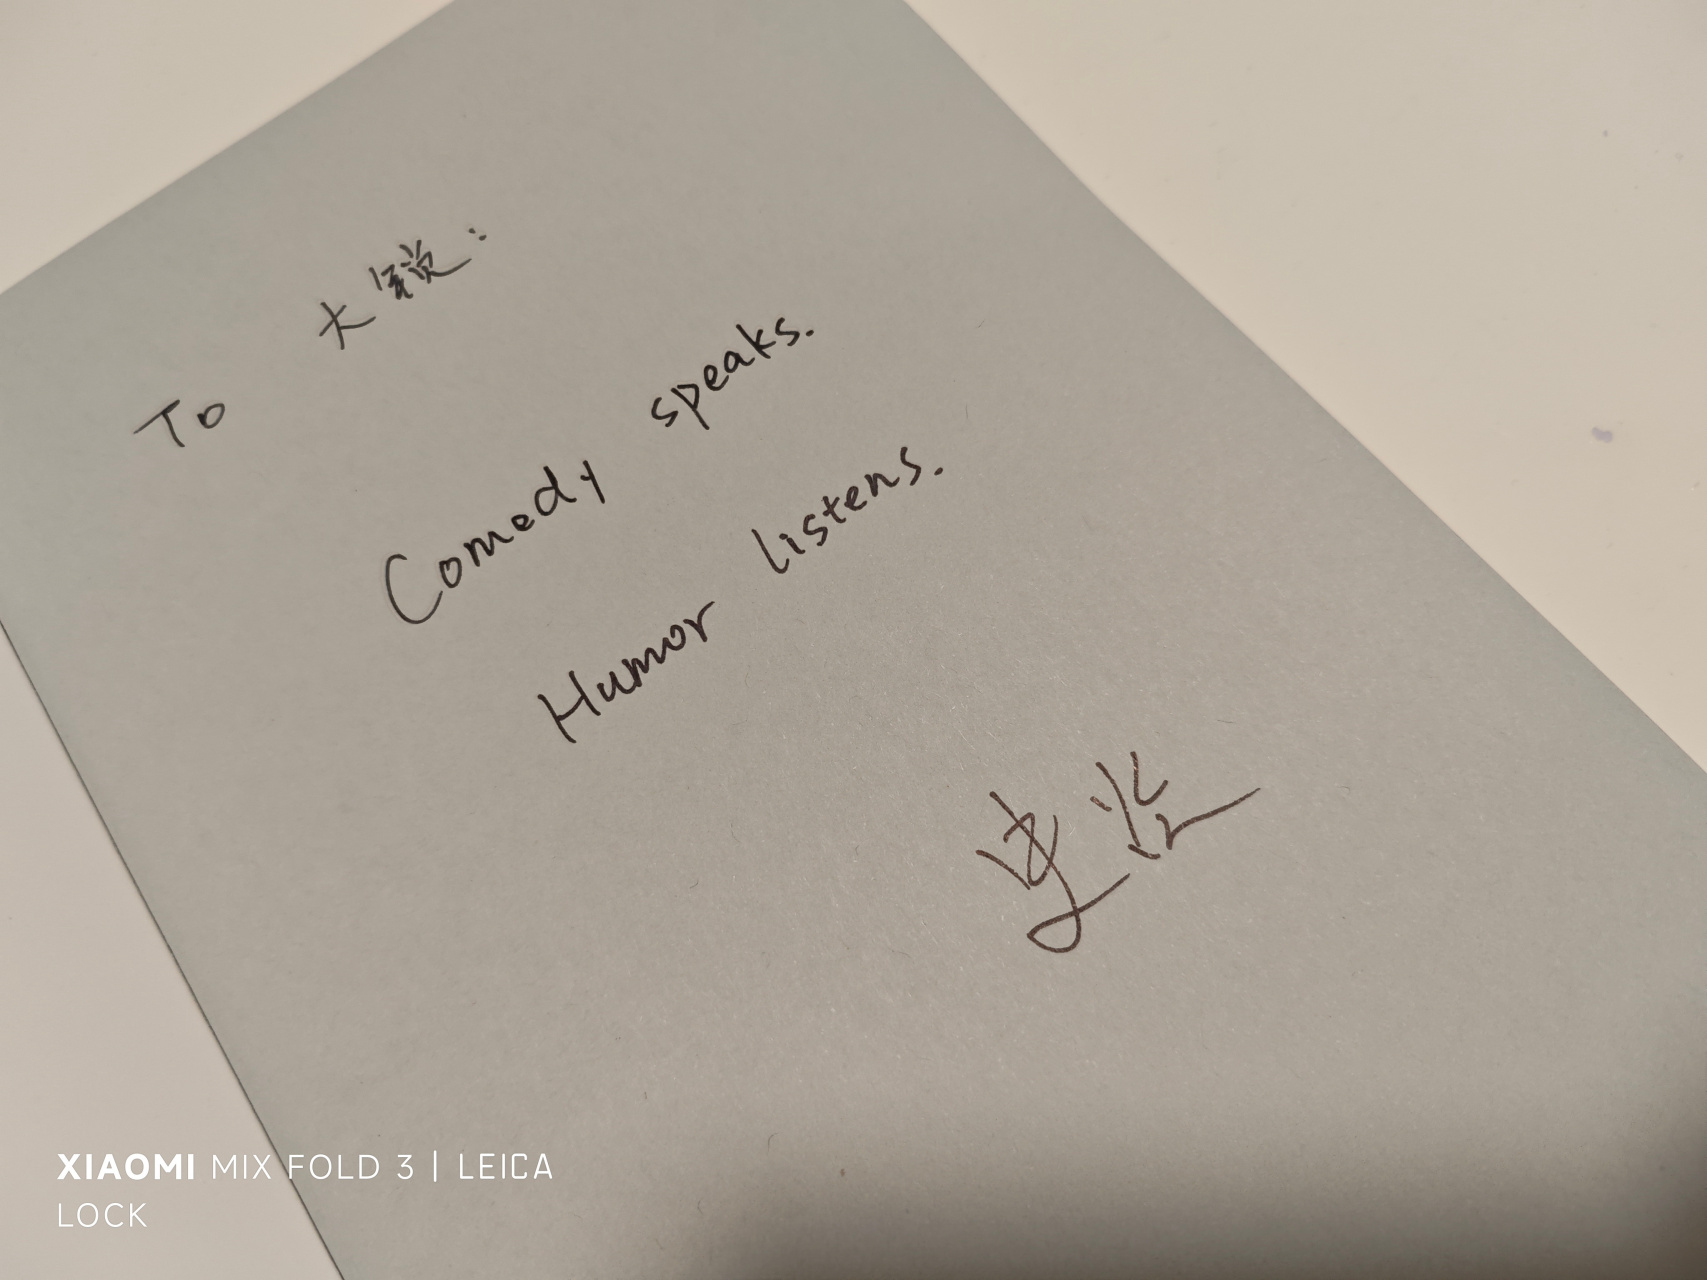 To 大锐:
Comedy speaks.
Humor listens.
史炎
XIAOMI MIX FOLD 3 | LEICA
LOCK